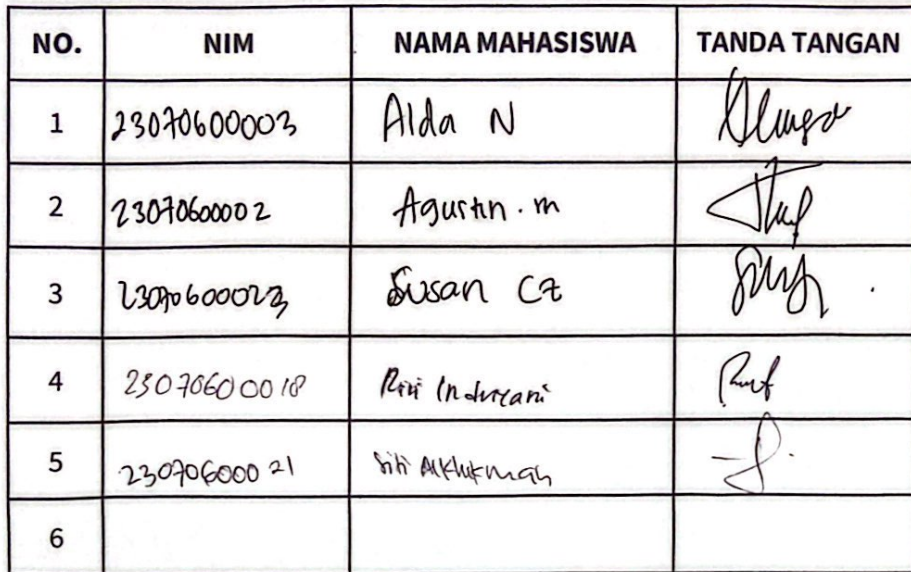 NO. NIM NAMA MAHASISWA TANDA TANGAN
1 23070600003 Alda N
2 23070600002 Agustin . m
3 23070600023 Susan Cz
4 23070600018 Rini Indvicani
5 23070600021 Siti Alkhikmah
6